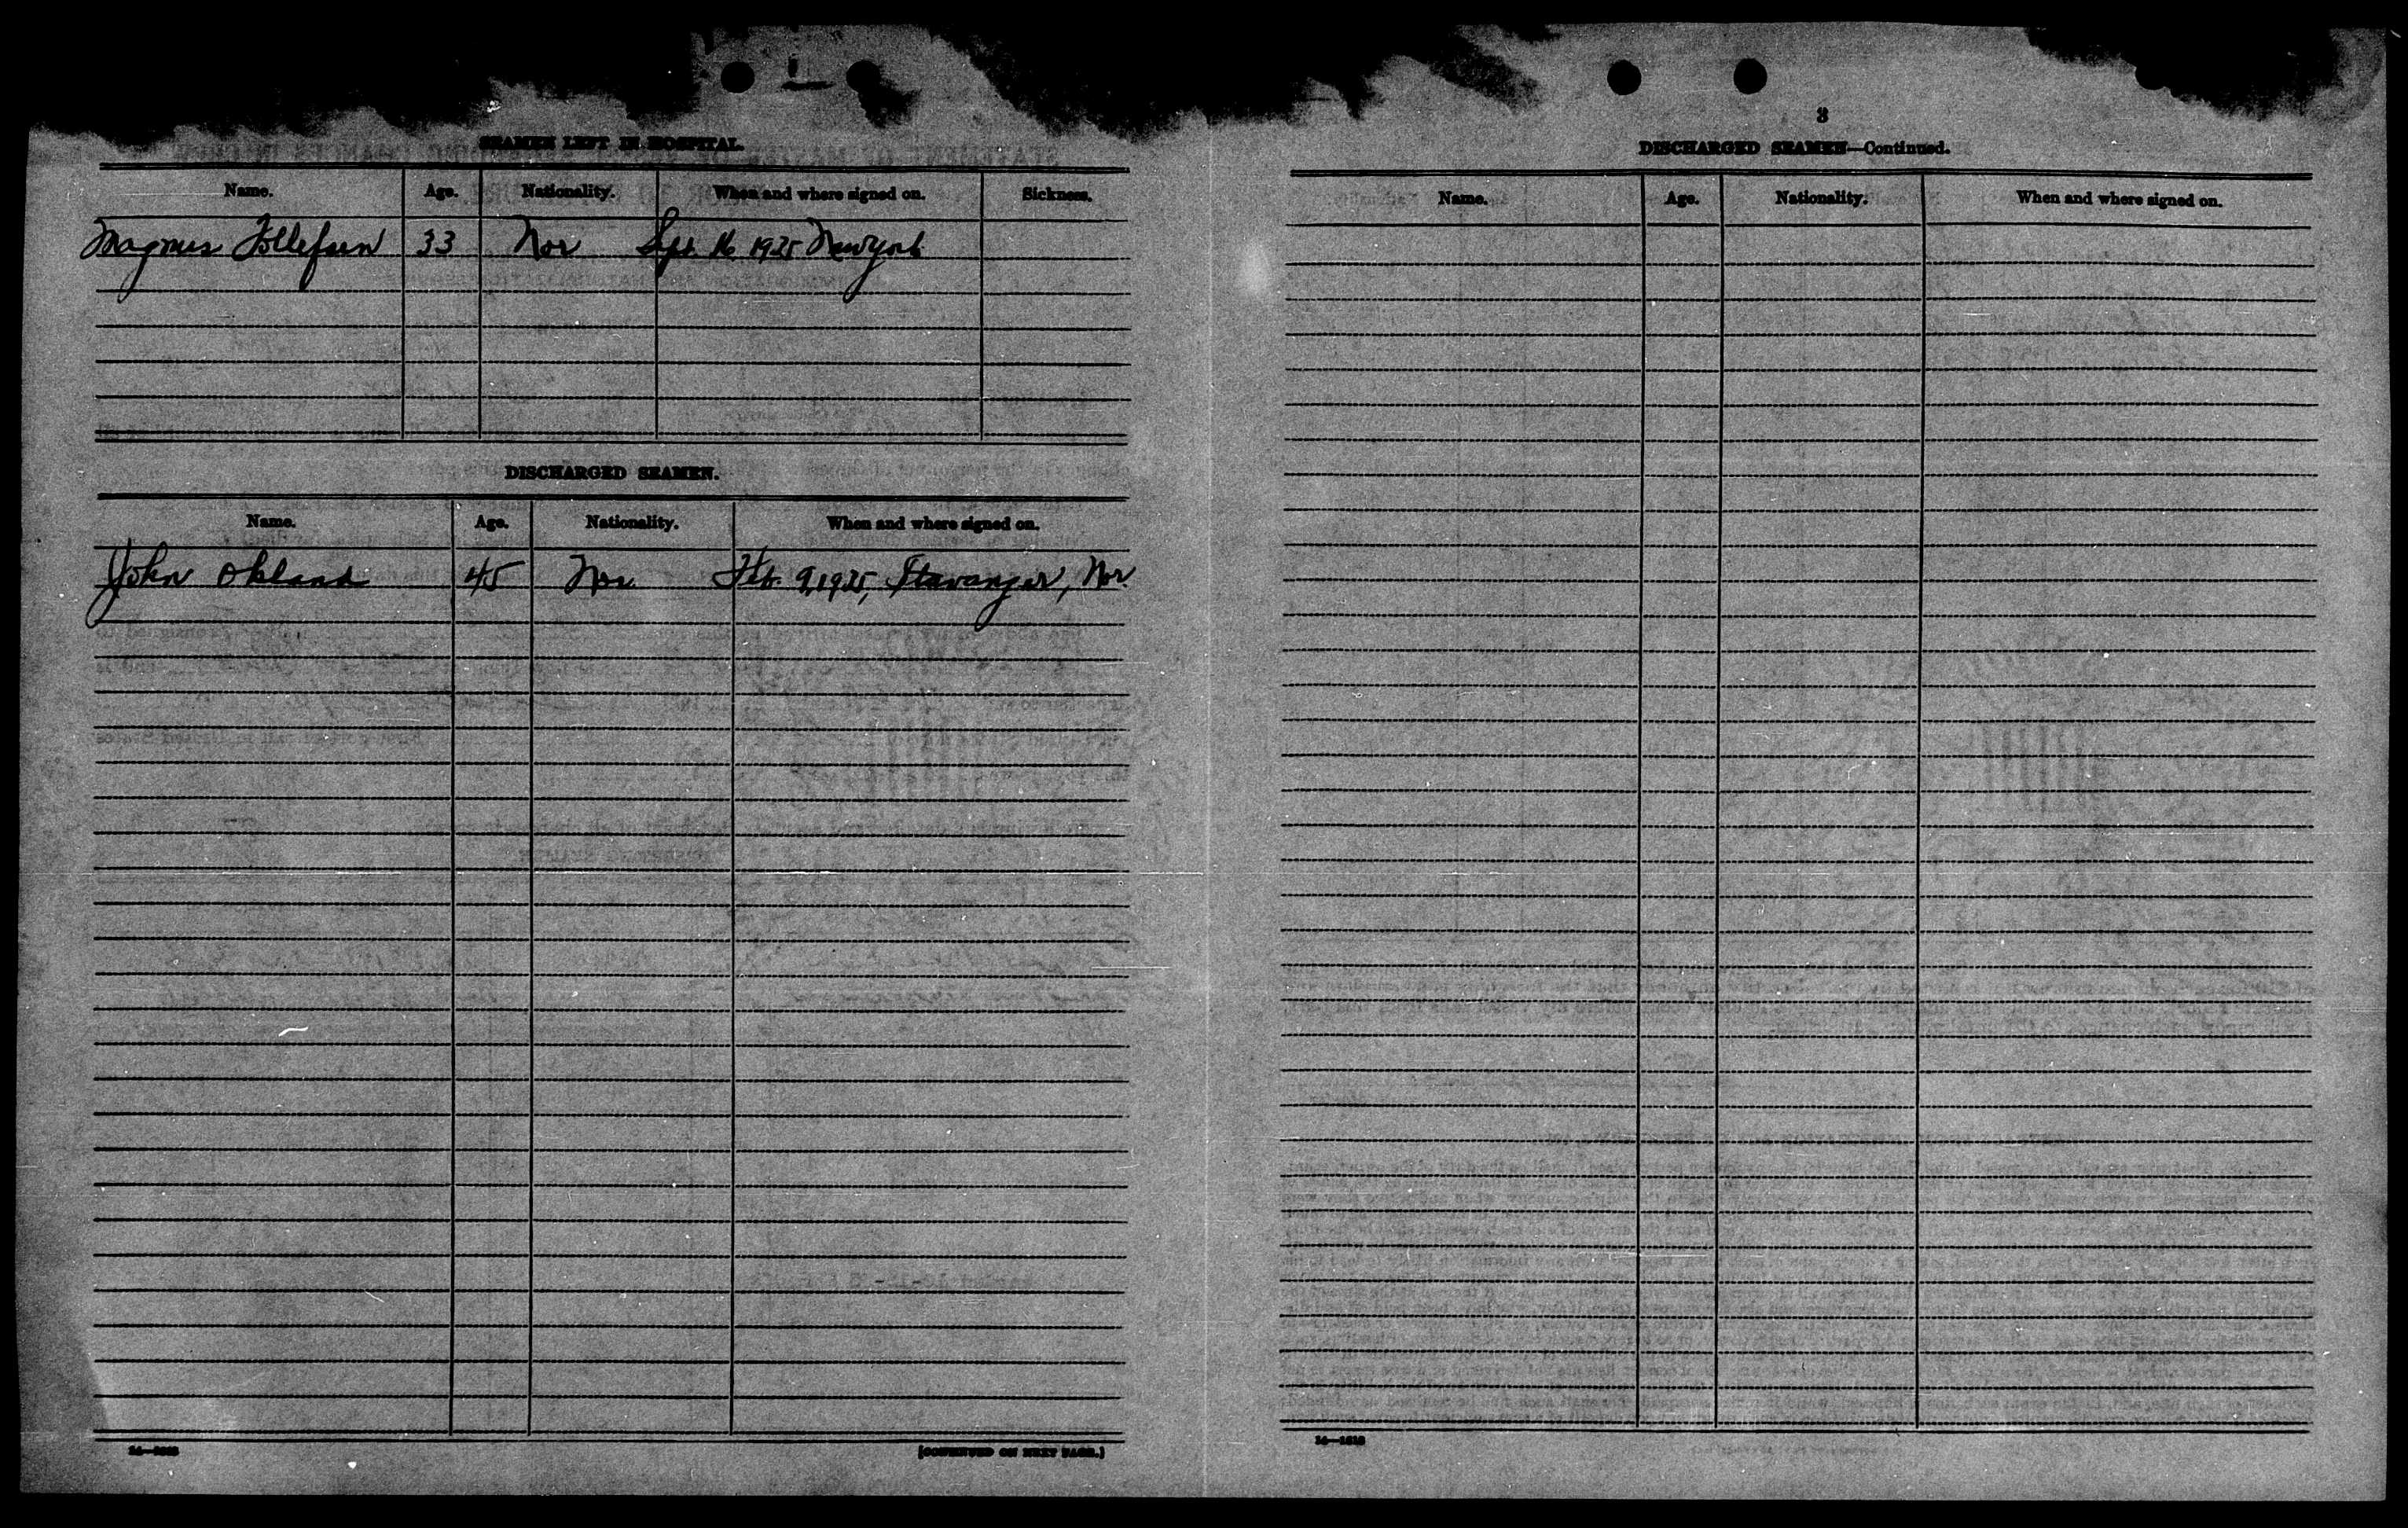 SEAMEN LEFT IN HOSPITAL.
Name. Age. Nationality. When and where signed on. Sickness.
Magnus Tollefsen 33 Nor Sept. 16 1925 New York
DISCHARGED SEAMEN.
Name. Age. Nationality. When and where signed on.
John Okland 45 Nor. Feb. 9, 1925, Stavanger, Nor.
[CONTINUED ON NEXT PAGE.]
3
DISCHARGED SEAMEN—Continued.
Name. Age. Nationality. When and where signed on.